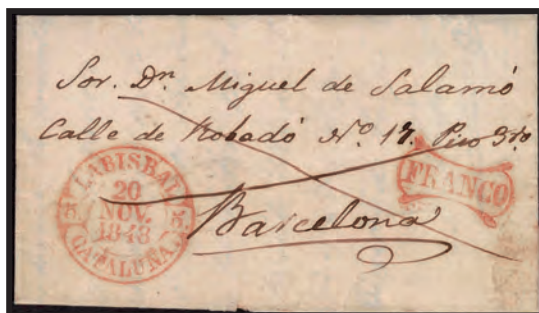 Sor. Dn. Miguel de Salamó
Calle de Robadó No. 17. Piso 3ro
Barcelona
LABISBAL
20
NOV.
1848
CATALUÑA
FRANCO